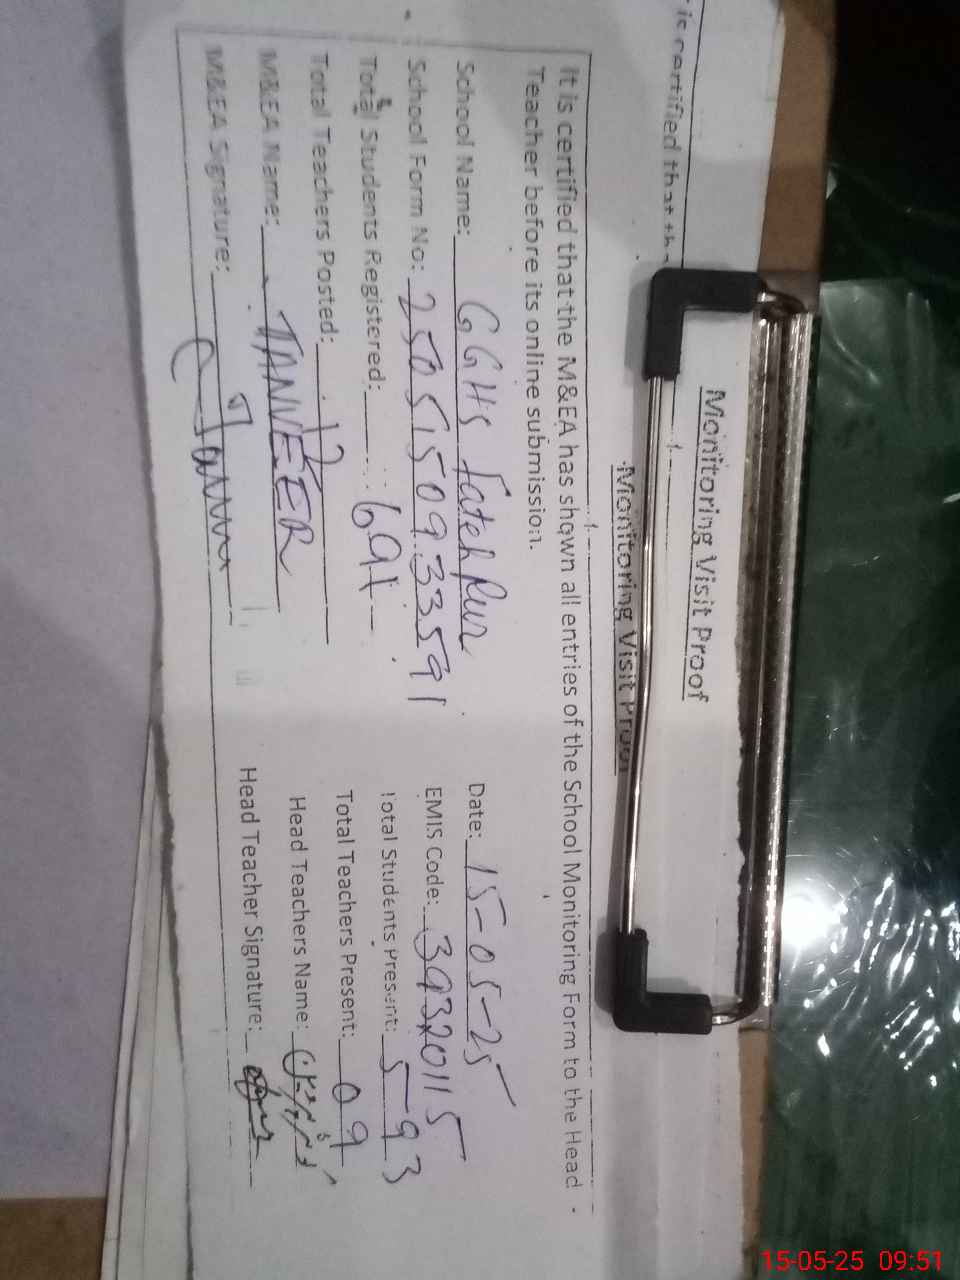 is certified that the
Monitoring Visit Proof
Monitoring Visit Proof
It is certified that the M&EA has shown all entries of the School Monitoring Form to the Head
Teacher before its online submission.
School Name: GGHS Fateh Pur Date: 15-05-25
School Form No: 2505150933591 EMIS Code: 39320115
Total Students Registered: 691 Total Students Present: 593
Total Teachers Posted: 12 Total Teachers Present: 09
M&EA Name: TANVEER Head Teachers Name:
M&EA Signature: Head Teacher Signature:
15-05-25 09:51